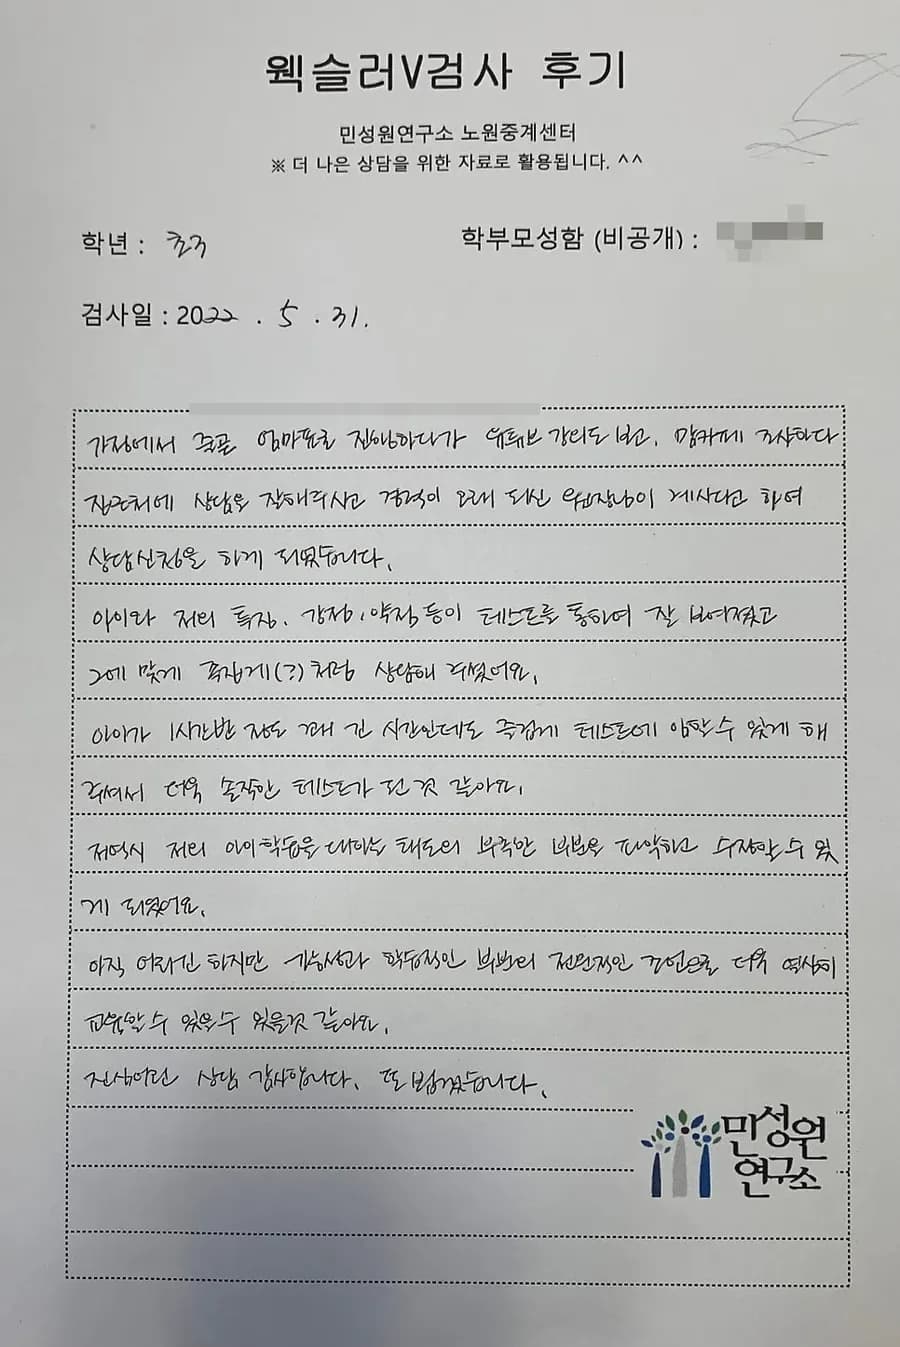 웩슬러V검사 후기
민성원연구소 노원중계센터
※ 더 나은 상담을 위한 자료로 활용됩니다. ^^
학년 : 초3
학부모성함 (비공개) :
검사일 : 2022 . 5 . 31.
가정에서 죽골 엄마표로 진행하다가 유튜브 강의도 보고, 맘카페 조사하다
집근처에 상담을 잘해주시고 경력이 오래 되신 원장님이 계시다고 하여
상담신청을 하게 되었습니다.
아이와 저의 특징, 강점, 약점 등이 테스트를 통하여 잘 보여졌고
그에 맞게 족집게(?)처럼 상담해 주셨어요.
아이가 1시간반 정도 꽤 긴 시간인데도 즐겁게 테스트에 임할 수 있게 해
주셔서 더욱 솔직한 테스트가 된 것 같아요.
저역시 저의 아이 학습을 대하는 태도의 부족한 부분을 파악하고 수정할 수 있
게 되었어요.
아직 어리긴 하지만 가능성과 학습적인 부분의 전문적인 조언으로 더욱 열심히
교육할 수 있을 수 있을것 같아요.
진심어린 상담 감사합니다. 또 뵙겠습니다.
민성원
연구소